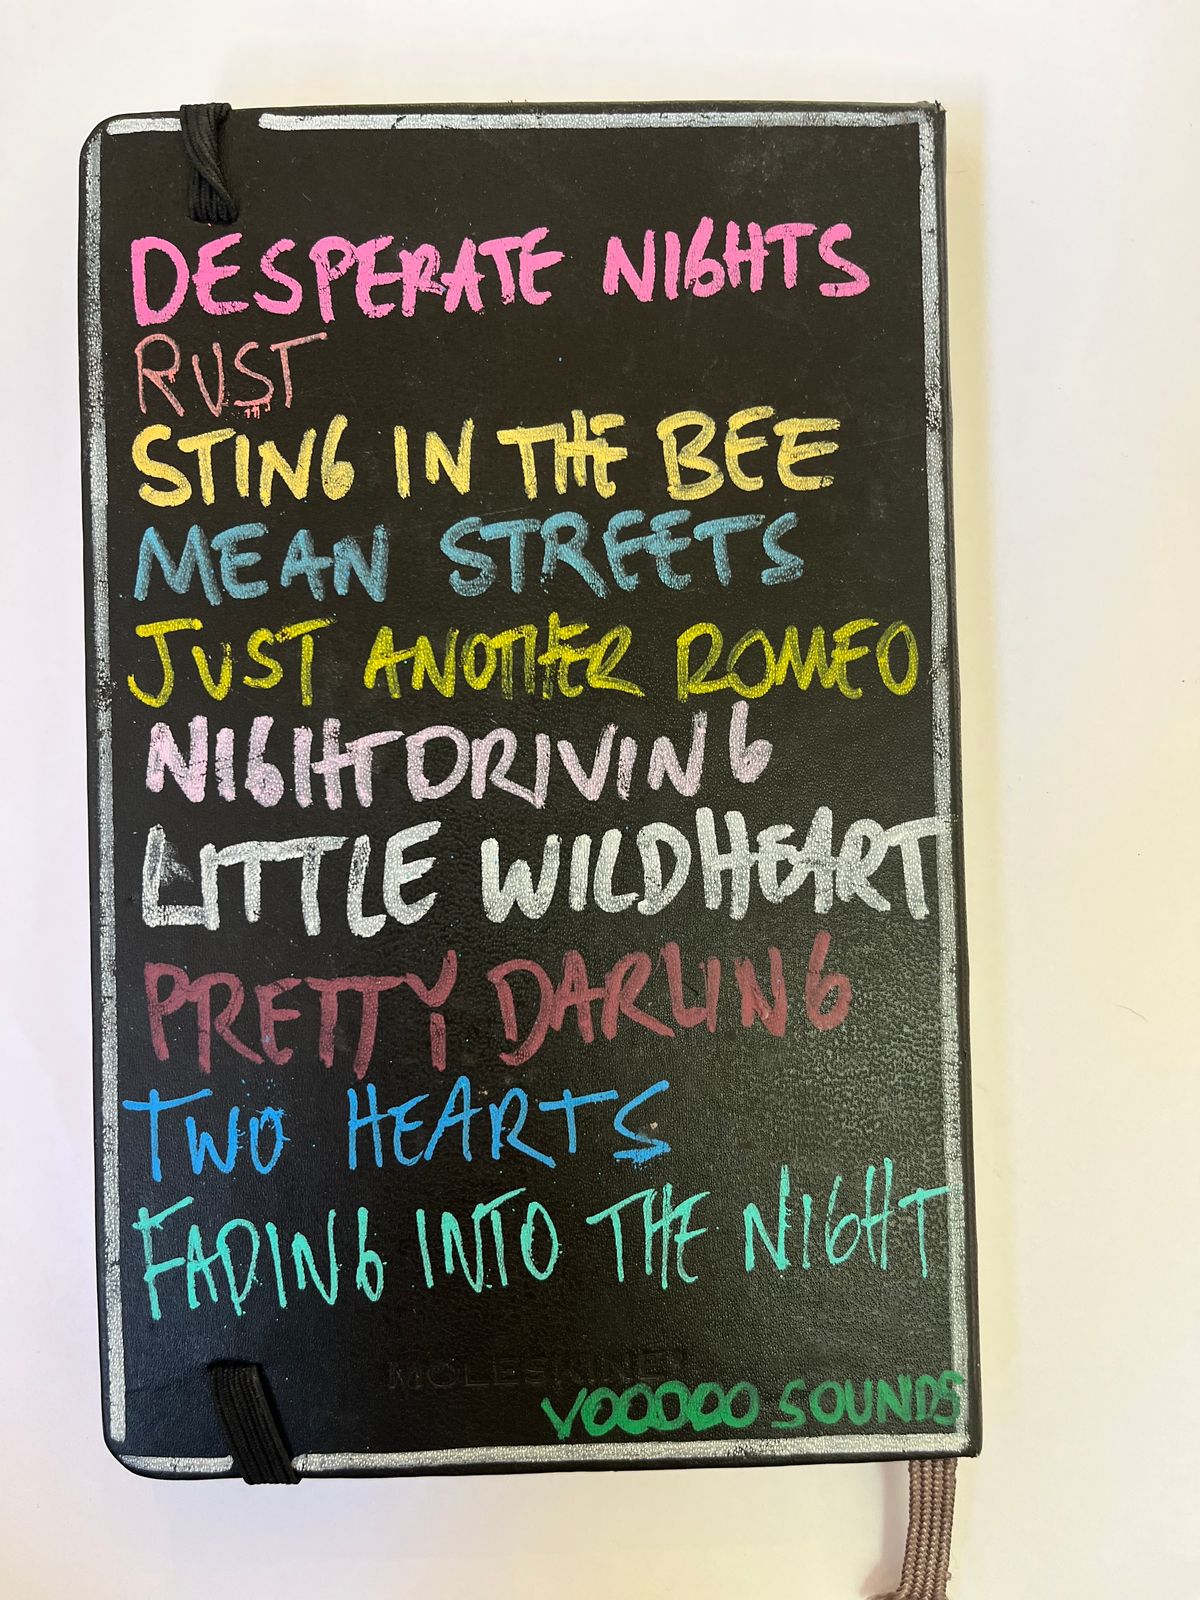 DESPERATE NIGHTS
RUST
STING IN THE BEE
MEAN STREETS
JUST ANOTHER ROMEO
NIGHTDRIVING
LITTLE WILDHEART
PRETTY DARLING
TWO HEARTS
FADING INTO THE NIGHT
MOLESKINE
VOODOO SOUNDS